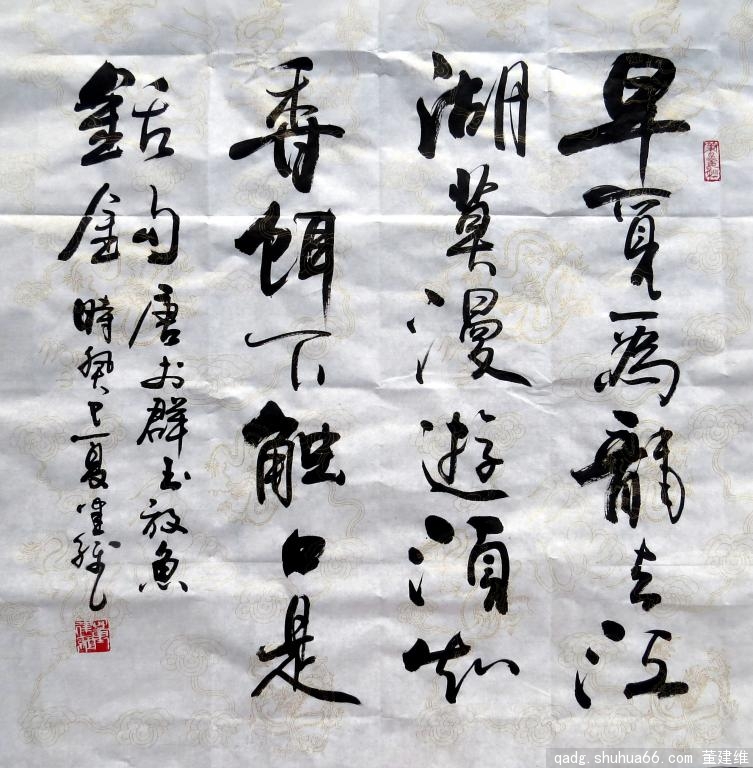 早覓為龍去江
湖莫漫遊須知
香餌下触口是
銛鈎
唐李群玉放魚
時癸巳夏建維
qadg.shuhua66.com 董建维